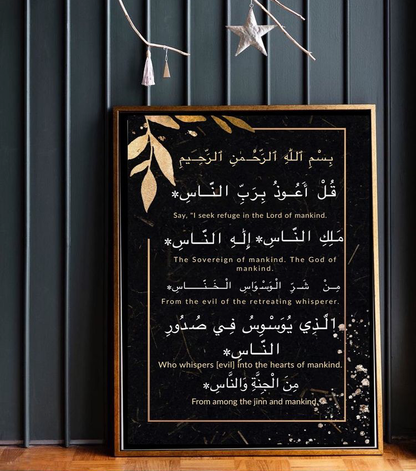 بِسْمِ ٱللَّهِ ٱلرَّحْمَٰنِ ٱلرَّحِيمِ
قُلْ أَعُوذُ بِرَبِّ النَّاسِ*
Say, "I seek refuge in the Lord of mankind.
مَلِكِ النَّاسِ* إِلَٰهِ النَّاسِ*
The Sovereign of mankind. The God of
mankind.
مِنْ شَرِّ الْوَسْوَاسِ الْخَنَّاسِ*
From the evil of the retreating whisperer.
الَّذِي يُوَسْوِسُ فِي صُدُورِ
النَّاسِ*
Who whispers [evil] into the hearts of mankind.
مِنَ الْجِنَّةِ وَالنَّاسِ*
From among the jinn and mankind.